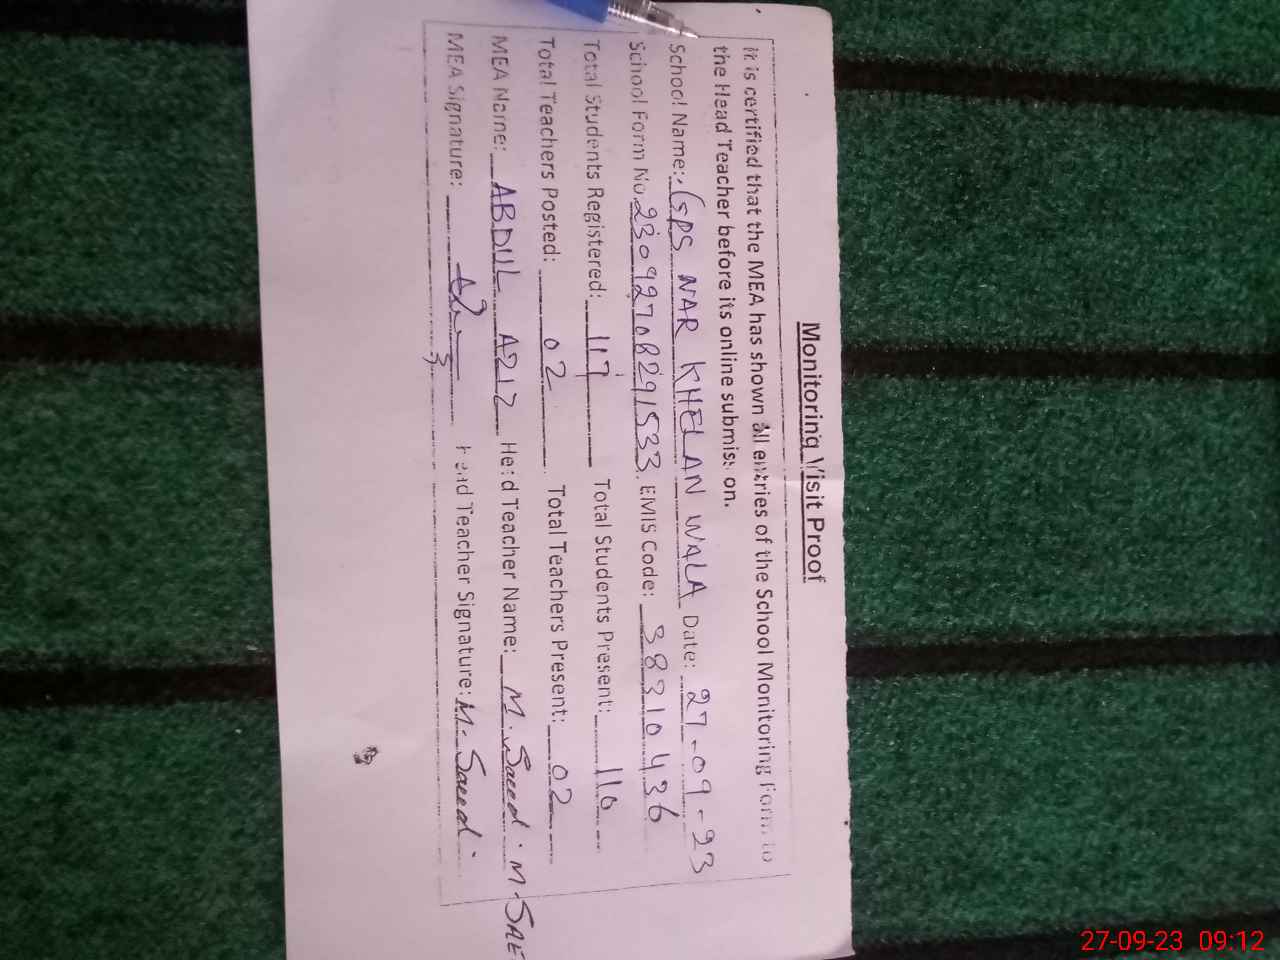 Monitoring Visit Proof
it is certified that the MEA has shown all entries of the School Monitoring Form to
the Head Teacher before its online submission.
School Name: GPS NAR KHELAN WALA Date: 27-09-23
School Form No. 23092708291533. EMIS Code: 38310436
Total Students Registered: 117 Total Students Present: 110
Total Teachers Posted: 02 Total Teachers Present: 02
MEA Name: ABDUL AZIZ Head Teacher Name: M. Saeed. M-SAE
MEA Signature: Head Teacher Signature: M. Saeed.
27-09-23 09:12